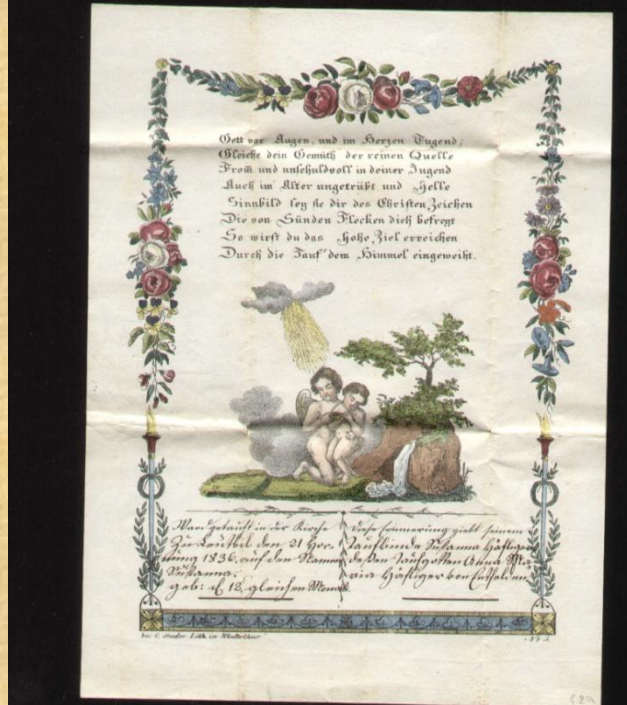 Gott vor Augen, und im Herzen Tugend;
Gleiche dein Gemüth der reinen Quelle
From̄ und unschuldvoll in deiner Jugend
Auch im Alter ungetrübt und Helle
Sinnbild sey sie dir des Christen Zeichen
Die von Sünden Flecken dich befreyt
So wirst du das hohe Ziel erreichen
Durch die Tauf' dem Himmel eingeweiht.
Ward getauft in der Kirche
zu den 21 Hor-
nung 1836. auf den Namen
Susanna.
geb: d 18 gleichen Monat
Diese Erinnerung giebt seinem
Taufkinde Susanna
dessen Taufgotten Anna Ma-
ria von
bei C. Studer Lith. in Winterthur